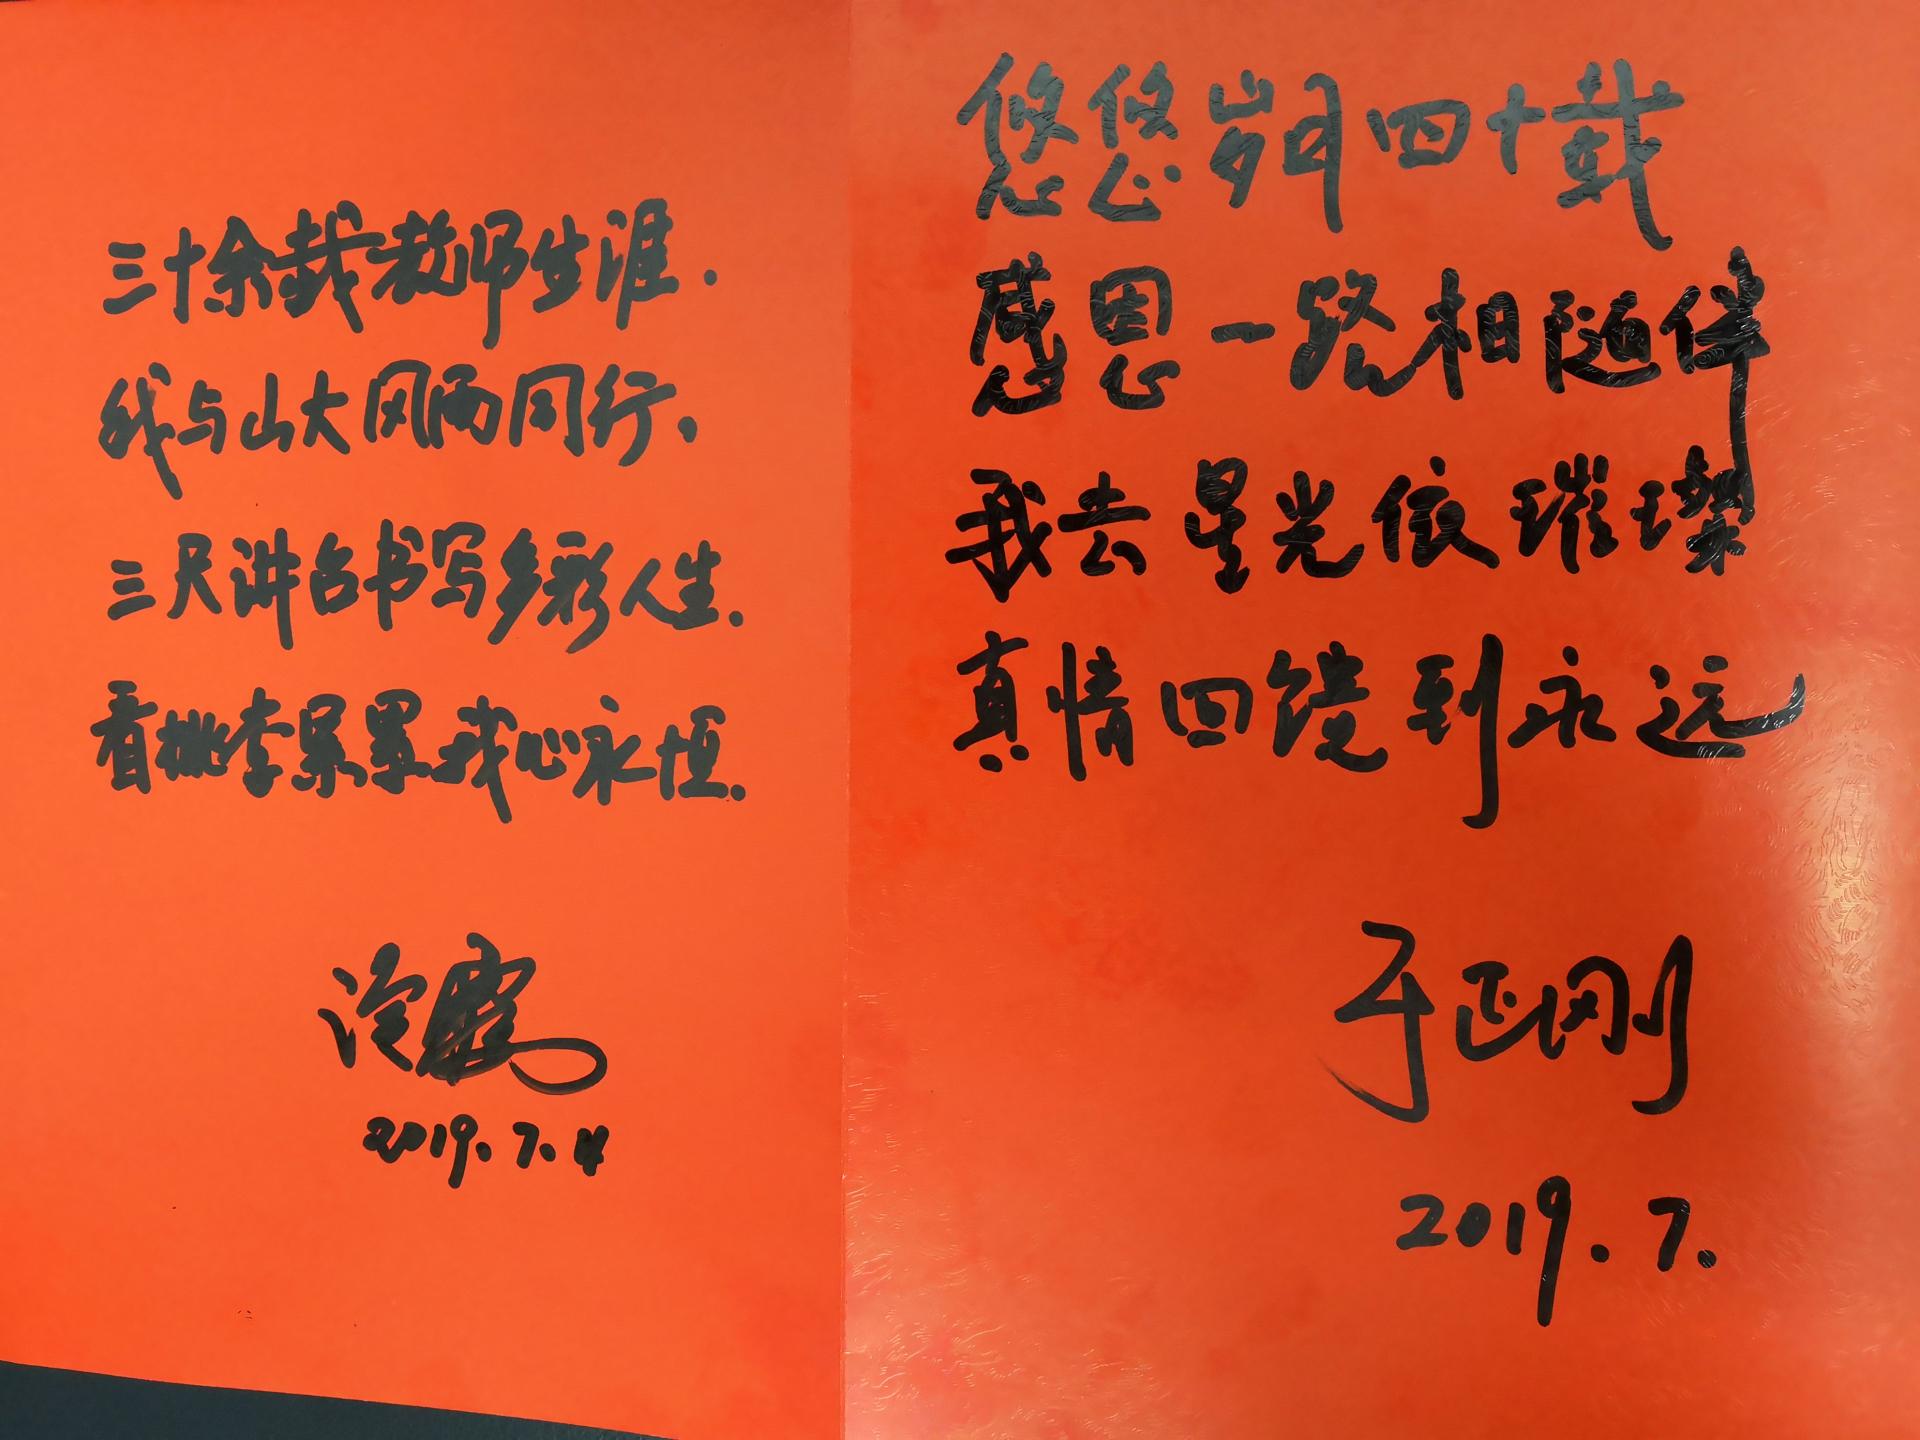 三十余载教师生涯.
我与山大风雨同行.
三尺讲台书写多彩人生.
看桃李累累我心永恒.
冷霞
2019.7.4
悠悠岁月四十载
感恩一路相随伴
我去星光依璀璨
真情回馈到永远
于正刚
2019.7.